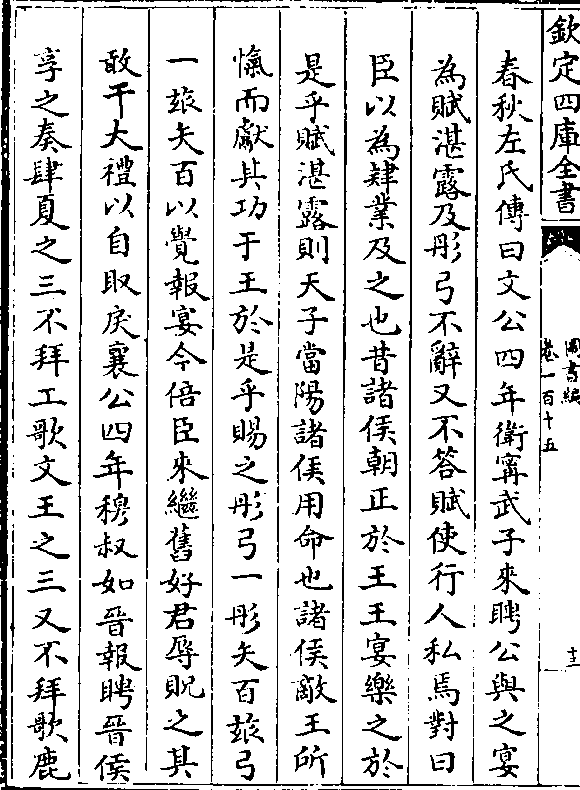 欽定四庫全書
圖書編
卷一百十五
十三
春秋左氏傳曰文公四年衛寗武子來聘公與之宴
為賦湛露及彤弓不辭又不答賦使行人私焉對曰
臣以為肄業及之也昔諸侯朝正於王王宴樂之於
是乎賦湛露則天子當陽諸侯用命也諸侯敵王所
愾而獻其功于王於是乎賜之彤弓一彤矢百玈弓
一玈矢百以覺報宴今倍臣來繼舊好君辱貺之其
敢干大禮以自取戾襄公四年穆叔如晉報聘晉侯
享之奏肆夏之三不拜工歌文王之三又不拜歌鹿